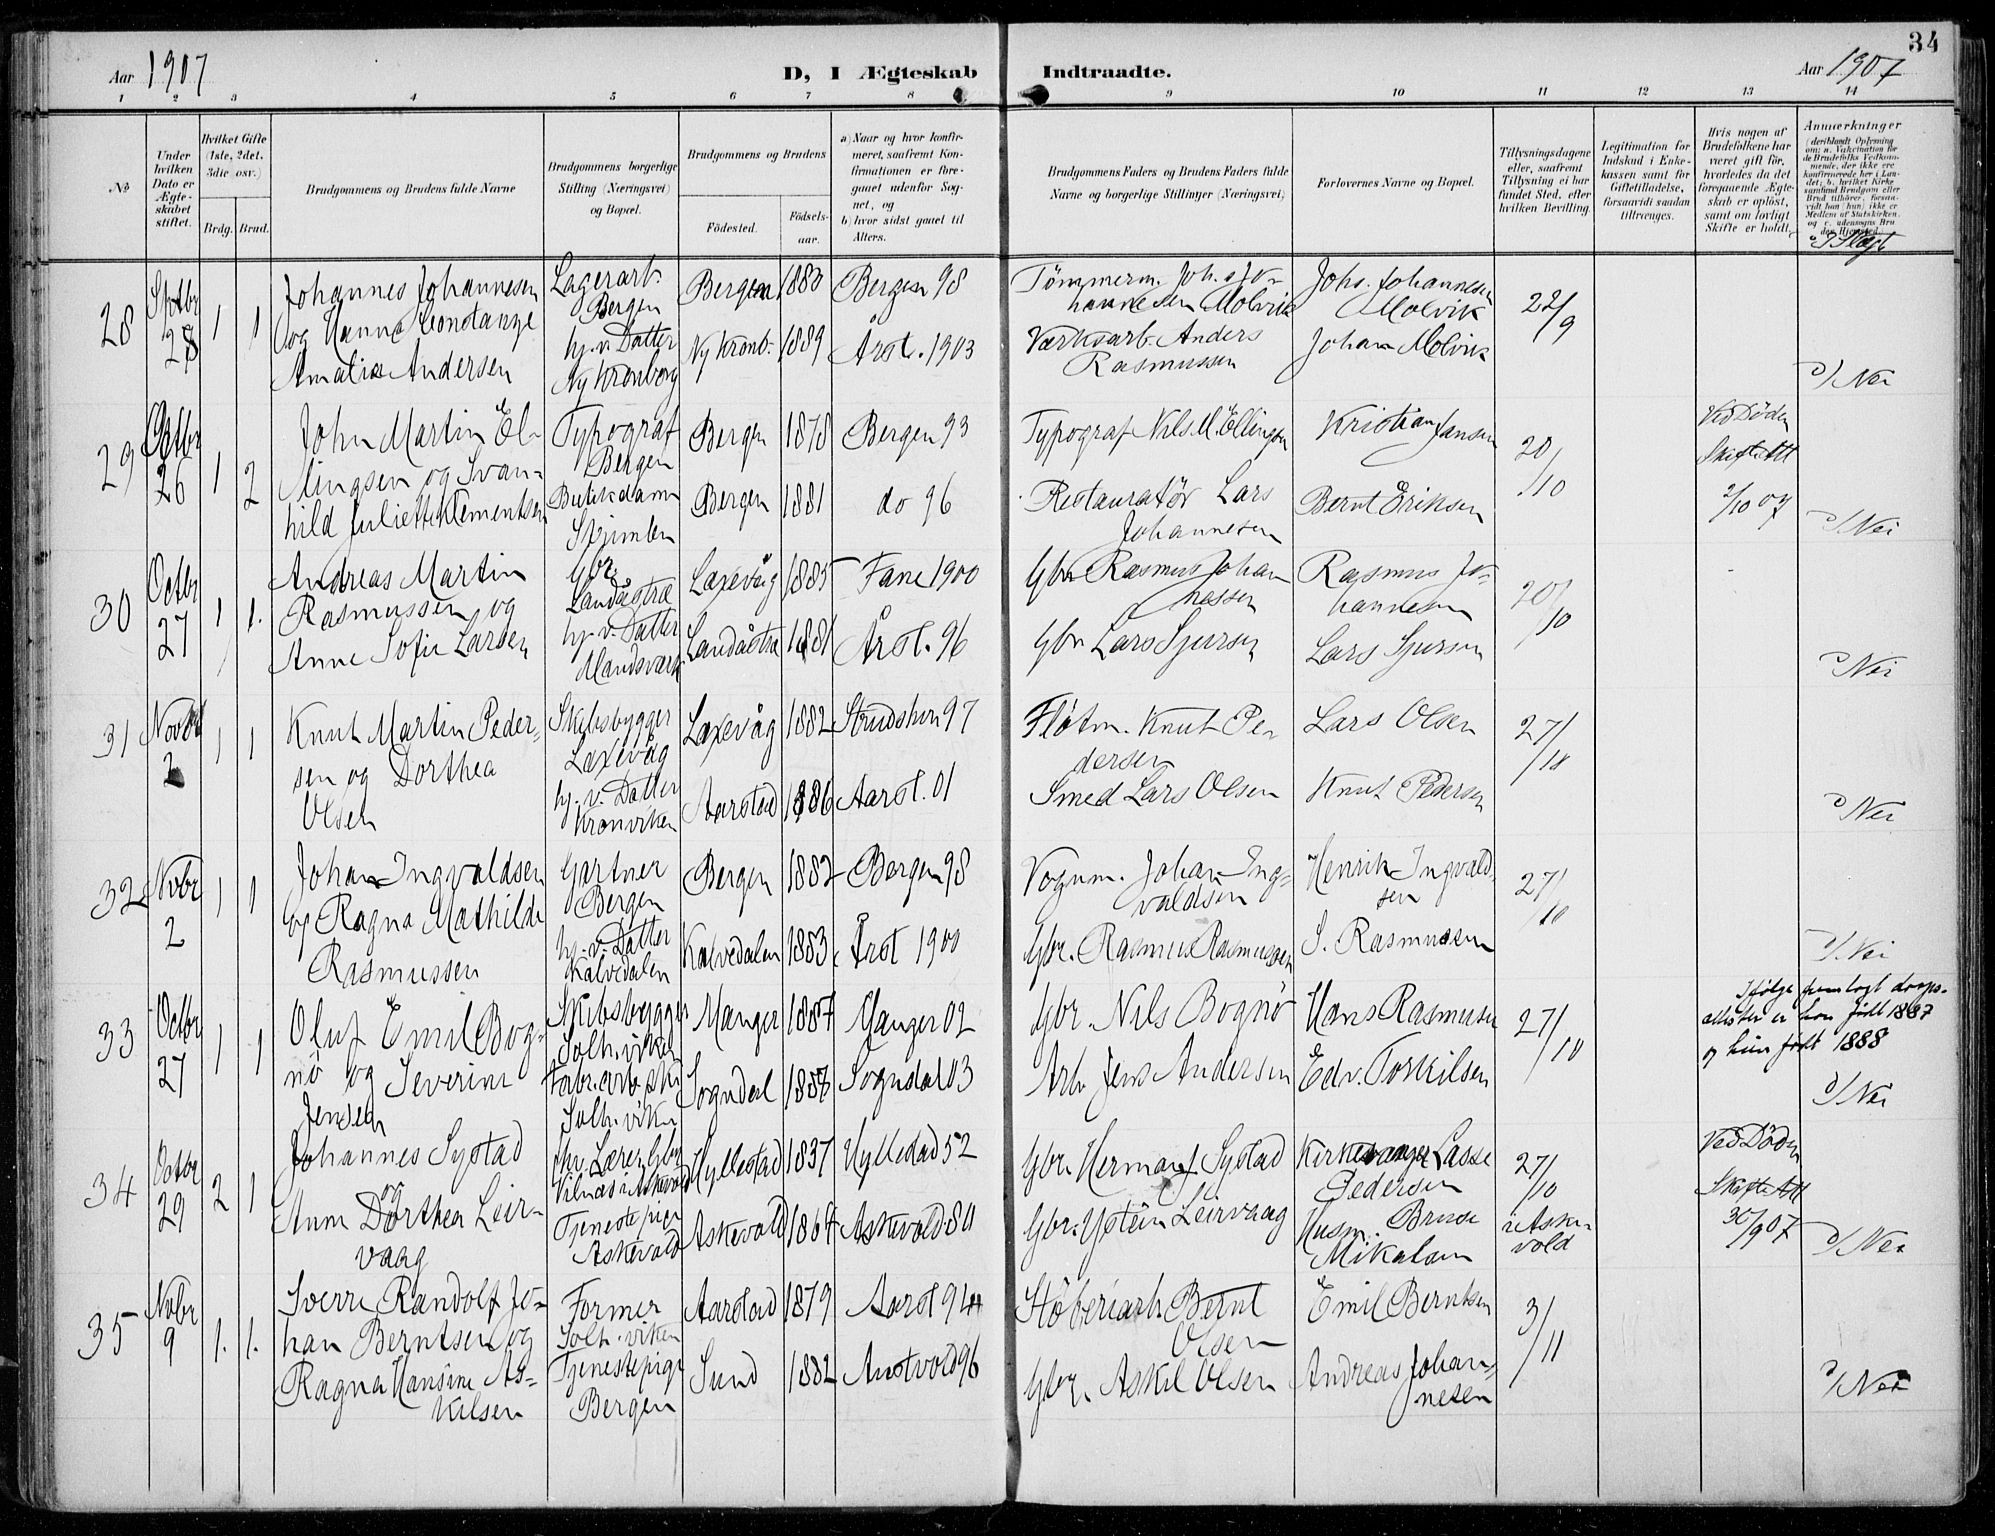 34
Aar 1907
D, I Ægteskab Indtraadte.
Aar 1907
1 2 3 4 5 6 7 8 9 10 11 12 13 14
No
Under hvilken Dato er Ægteskabet stiftet.
Hvilket Gifte (1ste, 2det, 3die osv.)
Brdg. Brud.
Brudgommens og Brudens fulde Navne
Brudgommens borgerlige Stilling (Næringsvei) og Bopæl.
Brudgommens og Brudens
Fødested.
Fødsels-aar.
a) Naar og hvor konfirmeret, saafremt Konfirmationen er foregaaet udenfor Sognet, og
b) hvor sidst gaaet til Alters.
Brudgommens Faders og Brudens Faders fulde Navne og borgerlige Stillinger (Næringsvei)
Forlovernes Navne og Bopæl.
Tillysningsdagene eller, saafremt Tillysning ei har fundet Sted, efter hvilken Bevilling.
Legitimation for Indskud i Enkekassen samt for Giftetilladelse, forsaavidt saadan tiltrænges.
Hvis nogen af Brudefolkene har været gift før, hvorledes da det foregaaende Ægteskab er opløst, samt om lovligt Skifte er holdt.
Anmærkninger
28 Septbr 28 1 1
Johannes Johannesen
og Hanna Constanze
Amalia Andersen
Lagerarb.
Bergen
hj. v. Datter
Ny Kronborg
Bergen 1883 Bergen 98
Ny Kronb. 1889 Årst. 1903
Tømmerm. Joh.s Johannesen Molvik
Værksarb. Anders
Rasmussen
Johs. Johannesen
Molvik
Johan Molvik
22/9
Nei
29 Octbr 26 1 2
John Martin Ellingsen og Svanhild Juliette Klementsen
Typograf
Bergen
Bergen 1878 Bergen 93
Bergen 1881 do 96
Typograf Nils M. Ellingsen
Restauratør Lars
Johannesen
Kristian Jansen
Bernt Eriksen
20/10
Ved Døden
Skifte Att
2/10 07
Nei
30 Octbr 27 1 1.
Andreas Martin
Rasmussen og
Anne Sofie Larsen
Gbr.
Landåstræ
hj. v. Datter
Laxevåg 1885 Fane 1900
Landåstræ 1881 Årst. 96
Gbr Rasmus Johannessen
Gbr Lars Sjursen
Rasmus Johannesen
Lars Sjursen
20/10
Nei
31 Novbr 2 1 1
Knut Martin Pedersen og Dorthea
Olsen
Skibsbygger
Laxevåg
hj. v. Datter
Kronviken
Laxevåg 1882 Strudshvn 97
Aarstad 1886 Aarst. 01
Fløtm. Knut Pedersen
Smed Lars Olsen
Lars Olsen
Knut Pedersen
27/10
Nei
32 Nvbr 2 1 1
Johan Ingvaldsen
og Ragna Mathilde
Rasmussen
Gartner
Bergen
hj. v. Datter
Kalvedalen
Bergen 1882 Bergen 98
Kalvedalen 1883 Årst 1900
Vognm. Johan Ingvaldsen
Gbr. Rasmus Rasmussen
Henrik Ingvaldsen
J. Rasmussen
27/10
Nei
33 Octbr 27 1 1
Oluf Emil Bognø og Severine
Jensen
Skibsbygger
Solh.viken
Solh.viken
Manger 1887 Manger 02
Sogndal 1888 Sogndal 03
Gbr. Nils Bognø
Arb. Jens Andersen
Hans Rasmussen
Edv. Torkilsen
27/10
Ifølge fremlagt daapsattester er han født 1887
og hun født 1888
Nei
34 Octbr 29 2 1
Johannes Systad
og
Anne Dorthea Leirvaag
fhv. Lærer Gbr
Vilnæs i Askevold
Tjenestepige
Askevold
Hyllestad 1837 Hyllestad 52
Askevold 1864 Askevold 80
Gbr. Herman J Systad
Gbr. Ystein Leirvaag
Kirkesanger Lasse
Pedersen
Husm. Bruse
Mikalsen
27/10
i Askevold
Ved Døden
Skifte Att
30/9 07
Nei
35 Nvbr 9 1. 1.
Sverre Randolf Johan Berntsen og
Ragna Hansine Askilsen
Former
Solh.viken
Tjenestepige
Bergen
Aarstad 1879 Aarst 94
Sund 1882 Austvold 96
Støberiarb. Bernt
Olsen
Gbr. Askil Olsen
Emil Berntsen
Andreas Johannesen
3/11
Nei